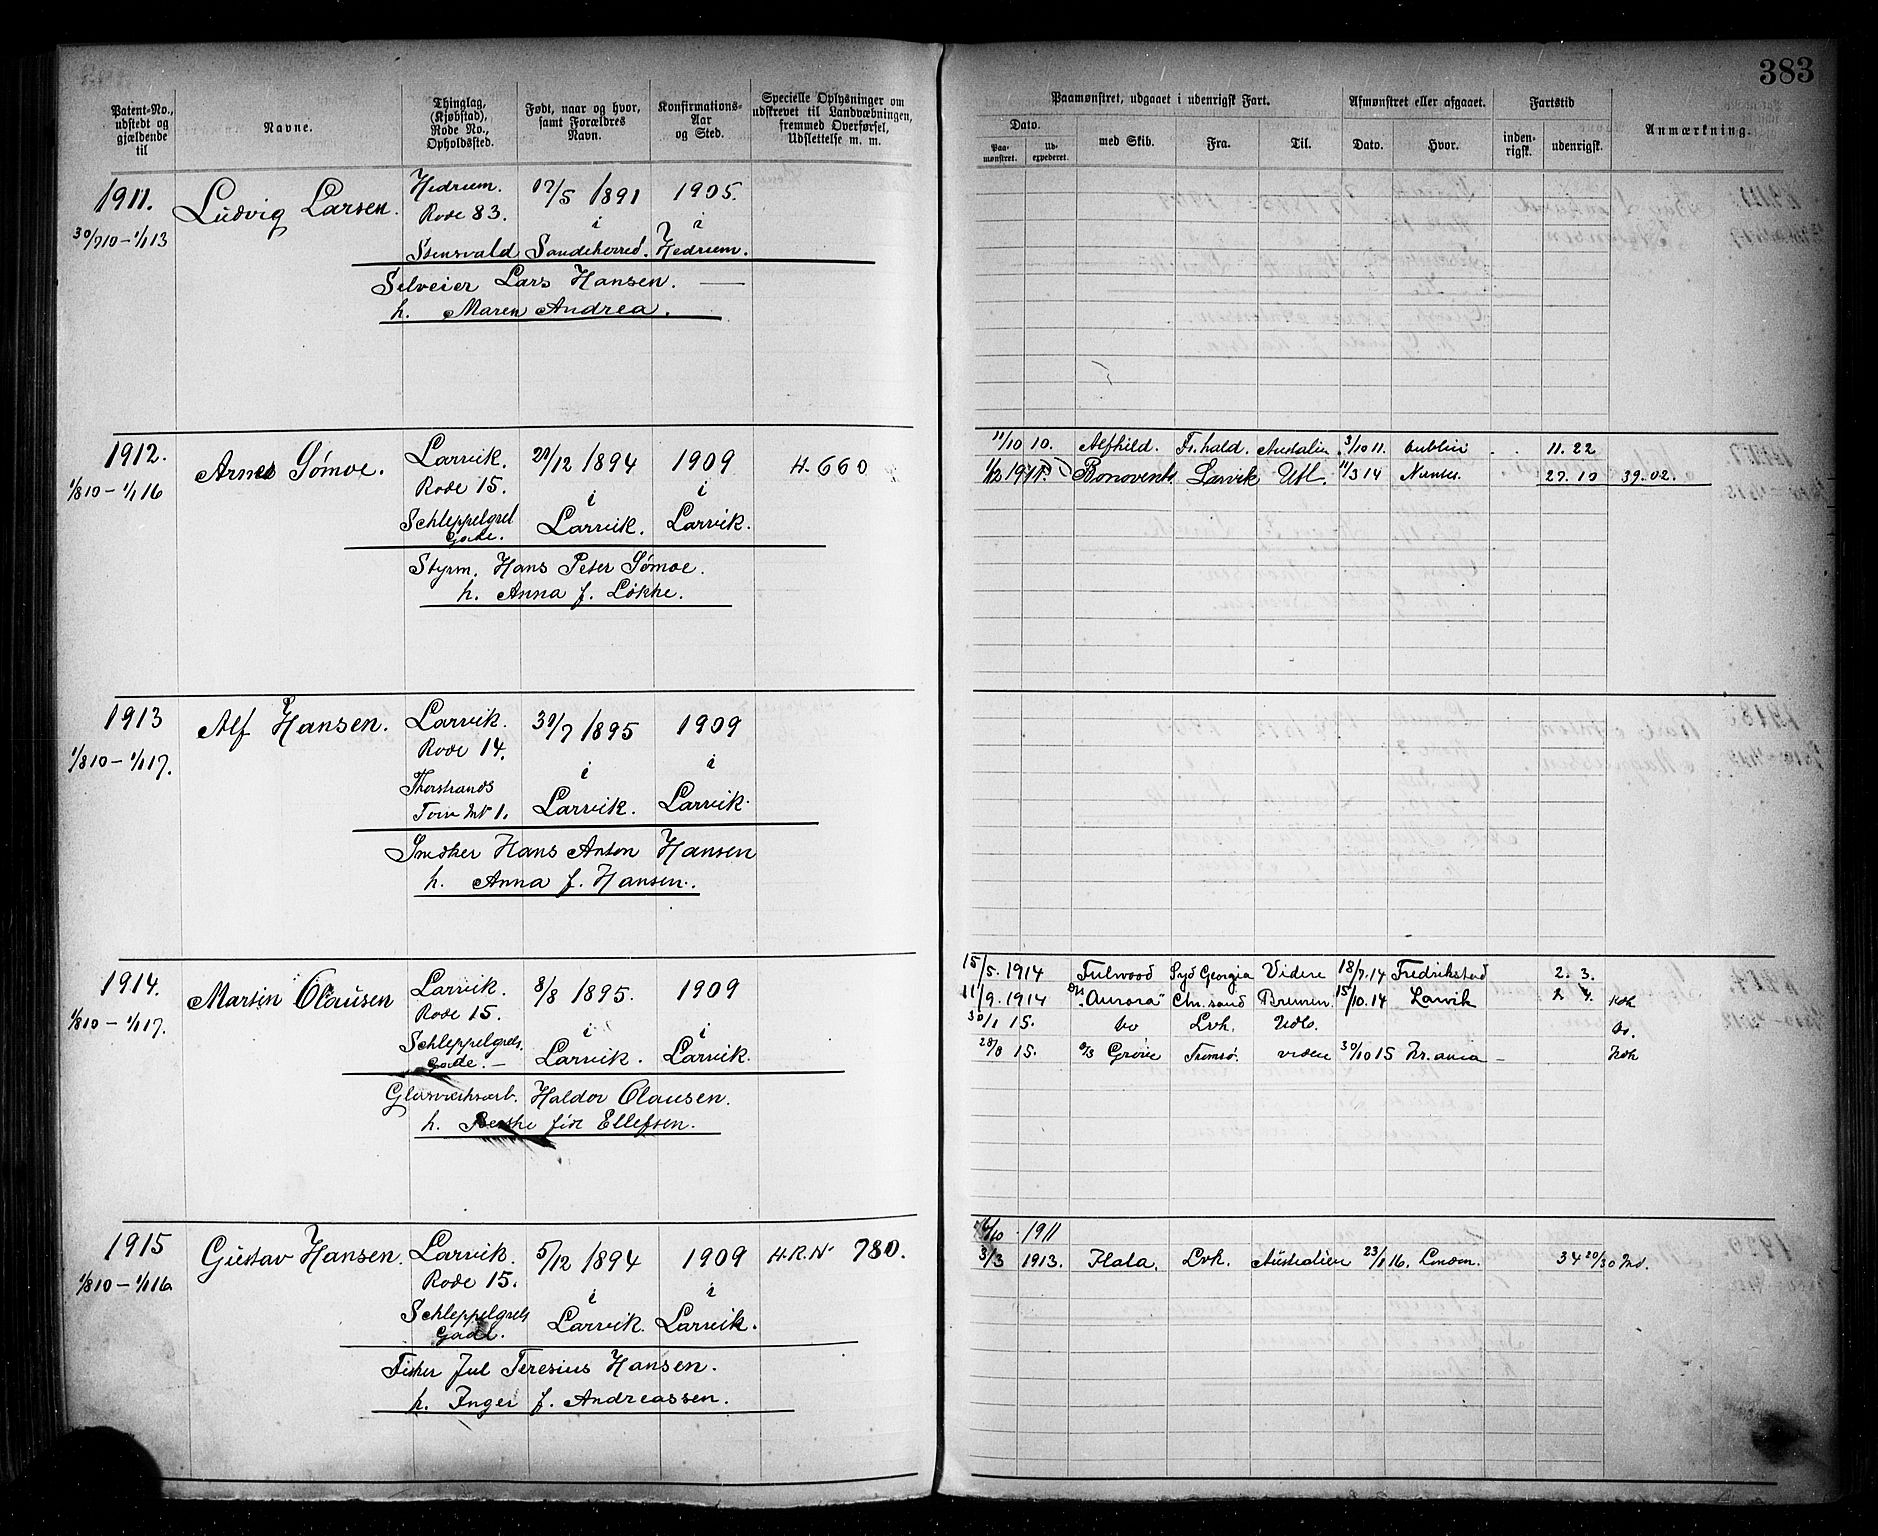 383
Patent-No., udstedt og gjældende til
Navne.
Thinglag, (Kjøbstad), Rode No., Opholdssted.
Født, naar og hvor, samt Forældres Navn.
Konfirmations- Aar og Sted.
Specielle Oplysninger om udskrevet til Landværbningen, fremmed Overførsel, Udslettelse m. m.
Paamønstret, udgaaet i udenrigsk Fart.
Afmønstret eller afgaaet.
Fartstid
Anmærkning.
Dato.
Paa- mønstret.
Ud- expederet.
med Skib.
Fra.
Til.
Dato.
Hvor.
inden- rigsk.
udenrigsk.
1911. Ludvig Larsen. Hedrum. 17/5 1891 1905.
Rode 83. i i
30/7 10 – 1/1 13
Stensvald Sandeherred. Hedrum.
Selveier Lars Hansen.
h. Maren Andrea.
1912. Arne Sømoe. Larvik. 29/12 1894 1909 H. 660
11/10 10. Alfhild. Fr.hald. Australien 3/10 11. Dublin 11. 22
1/8 10 – 1/1 16 Rode 15. i i
Larvik Utl. 11/3 14 27. 10 39. 02.
Schleppelgrel Gade. Larvik. Larvik.
Styrm. Hans Peter Sømoe.
h. Anna f. Løkke.
1913 Alf Hansen. Larvik. 30/7 1895 1909
Rode 14. i i
1/8 10 – 1/1 17.
Thorstrands Larvik. Larvik.
Snedker Hans Anton Hansen
h. Anna f. Hansen.
1914. Martin Olausen Larvik. 8/8 1895. 1909
15/5. 1914 Fulwood Syd Georgia Videre 18/7. 14 Fredrikstad 2. 3.
11/9. 1914 "Aurora" Chr.sand Bremen. 15/10. 14 Larvik
1/8 10 – 1/1 17. Rode 15. i i
30/1 15. do Lvk. Udl. do.
Schleppelgrels. Gade. – Larvik. Larvik.
28/8 15. Tromsø. videre 30/10 15 Kr.ania –
Glasværksarb. Haldor Olausen.
h. Berthe født Ellefsen.
1915 Gustav Hansen. Larvik. 5/12 1894 1909 H.R.N. 780.
1911
3/3 1913. Lvk. Australien 23/1 16. London. 34 20/30 Md.
1/8 10 – 1/1 16 Rode 15. i i
Schleppelgrels Gade. Larvik. Larvik.
Fisker Jul Teresius Hansen.
h. Inger f. Andreassen.